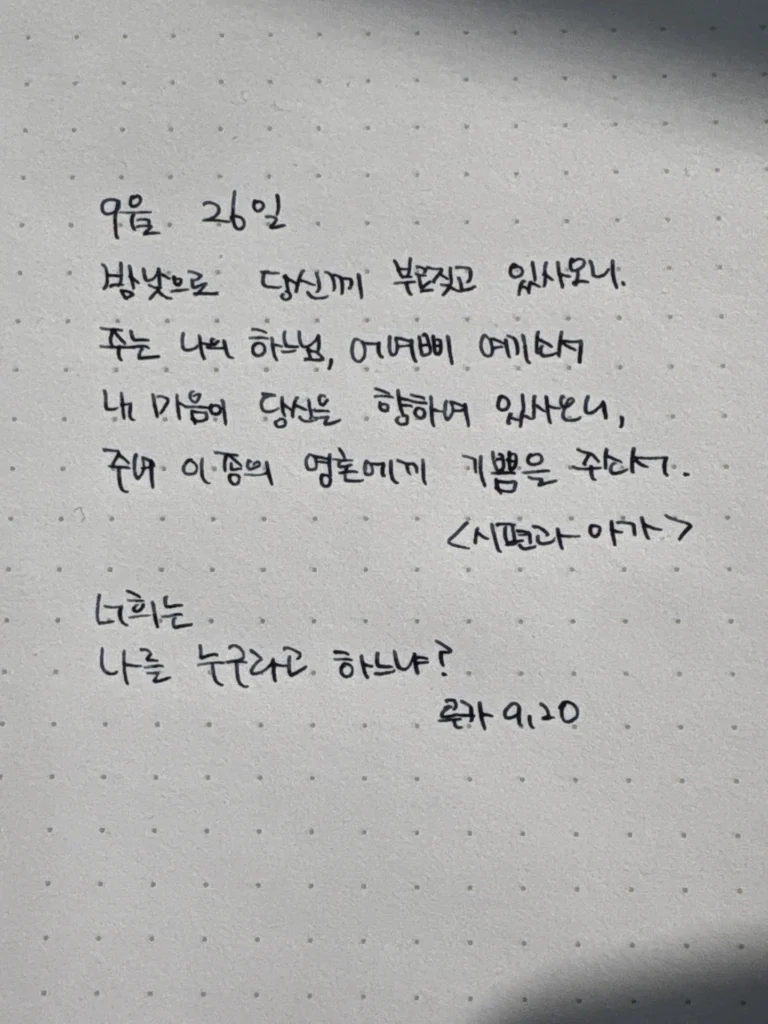 9월 26일
밤낮으로 당신께 부르짖고 있사오니.
주는 나의 하느님, 어여삐 여기소서
내 마음이 당신을 향하여 있사오니,
주여 이 종의 영혼에게 기쁨을 주소서.
<시편과 아가>
너희는
나를 누구라고 하느냐?
루카 9,20